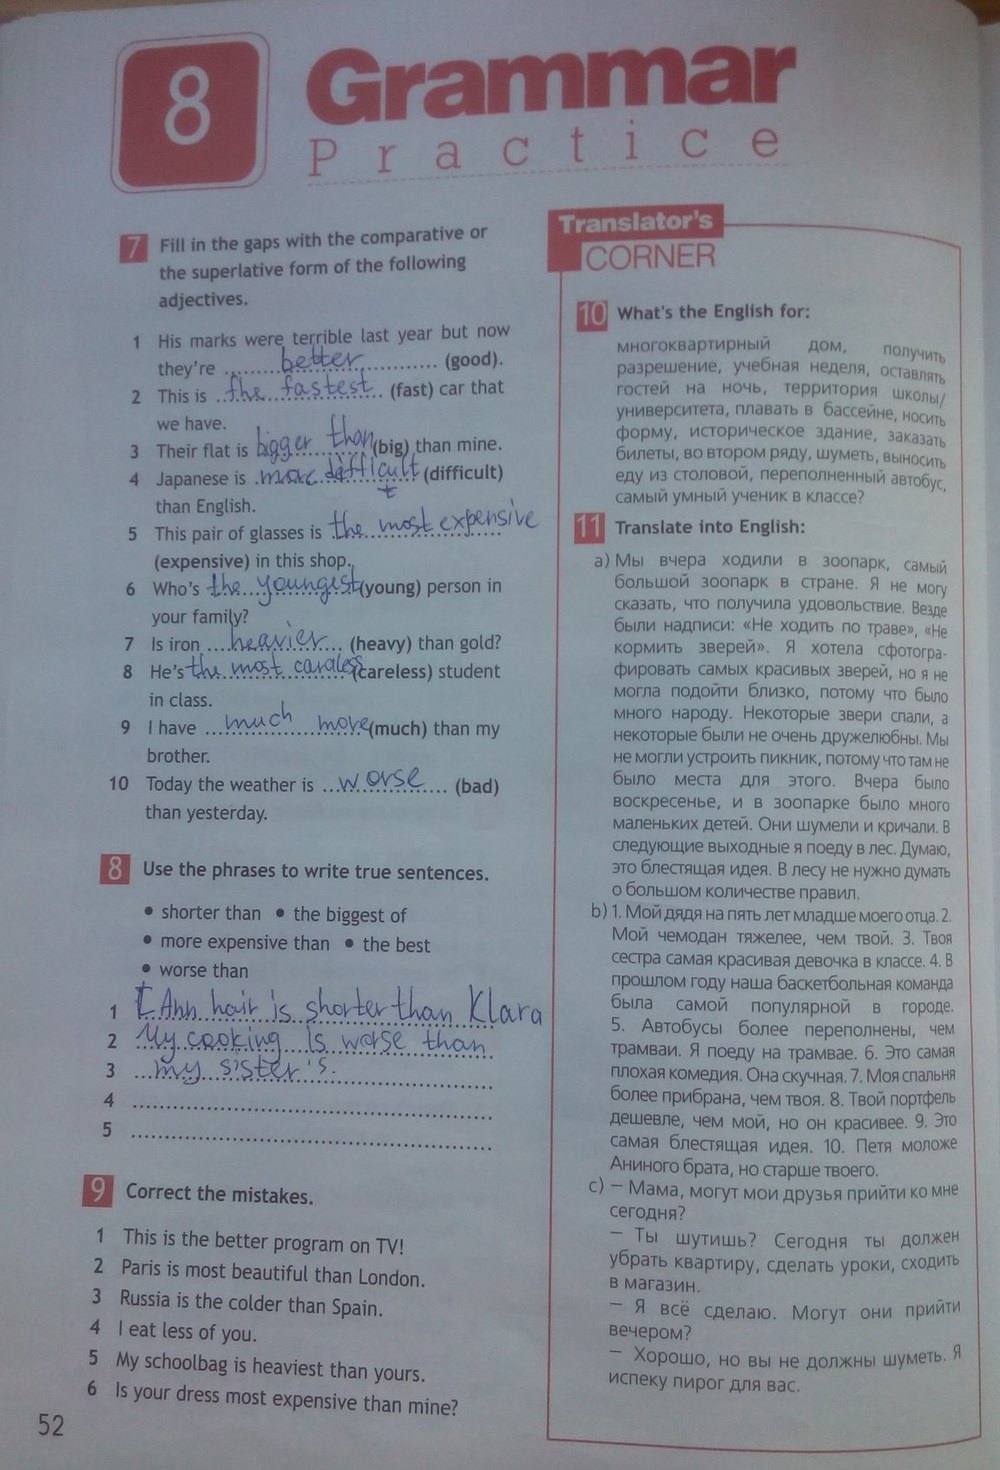 8
Grammar
Practice
7 Fill in the gaps with the comparative or
the superlative form of the following
adjectives.
1 His marks were terrible last year but now
they're ... better ... (good).
2 This is ... the fastest ... (fast) car that
we have.
3 Their flat is bigger than (big) than mine.
4 Japanese is ... more difficult (difficult)
t
than English.
5 This pair of glasses is the most expensive
(expensive) in this shop.
6 Who's the youngest (young) person in
your family?
7 Is iron ... heavier ... (heavy) than gold?
8 He's the most careless (careless) student
in class.
9 I have ... much more (much) than my
brother.
10 Today the weather is ... worse ... (bad)
than yesterday.
8 Use the phrases to write true sentences.
• shorter than • the biggest of
• more expensive than • the best
• worse than
1 Ann hair is shorter than Klara
2 My cooking is worse than
3 ... my sister's.
4
5
9 Correct the mistakes.
1 This is the better program on TV!
2 Paris is most beautiful than London.
3 Russia is the colder than Spain.
4 I eat less of you.
5 My schoolbag is heaviest than yours.
6 Is your dress most expensive than mine?
52
Translator's
CORNER
10 What's the English for:
многоквартирный дом, получить
разрешение, учебная неделя, оставлять
гостей на ночь, территория школы/
университета, плавать в бассейне, носить
форму, историческое здание, заказать
билеты, во втором ряду, шуметь, выносить
еду из столовой, переполненный автобус,
самый умный ученик в классе?
11 Translate into English:
a) Мы вчера ходили в зоопарк, самый
большой зоопарк в стране. Я не могу
сказать, что получила удовольствие. Везде
были надписи: «Не ходить по траве», «Не
кормить зверей». Я хотела сфотогра-
фировать самых красивых зверей, но я не
могла подойти близко, потому что было
много народу. Некоторые звери спали, а
некоторые были не очень дружелюбны. Мы
не могли устроить пикник, потому что там не
было места для этого. Вчера было
воскресенье, и в зоопарке было много
маленьких детей. Они шумели и кричали. В
следующие выходные я поеду в лес. Думаю,
это блестящая идея. В лесу не нужно думать
о большом количестве правил.
b) 1. Мой дядя на пять лет младше моего отца. 2.
Мой чемодан тяжелее, чем твой. 3. Твоя
сестра самая красивая девочка в классе. 4. В
прошлом году наша баскетбольная команда
была самой популярной в городе.
5. Автобусы более переполнены, чем
трамваи. Я поеду на трамвае. 6. Это самая
плохая комедия. Она скучная. 7. Моя спальня
более прибрана, чем твоя. 8. Твой портфель
дешевле, чем мой, но он красивее. 9. Это
самая блестящая идея. 10. Петя моложе
Аниного брата, но старше твоего.
c) – Мама, могут мои друзья прийти ко мне
сегодня?
– Ты шутишь? Сегодня ты должен
убрать квартиру, сделать уроки, сходить
в магазин.
– Я всё сделаю. Могут они прийти
вечером?
– Хорошо, но вы не должны шуметь. Я
испеку пирог для вас.